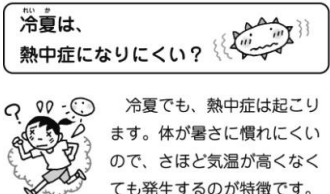 れいか
冷夏は、
熱中症になりにくい？
？
冷夏でも、熱中症は起こり
ます。体が暑さに慣れにくい
ので、さほど気温が高くなく
ても発生するのが特徴です。